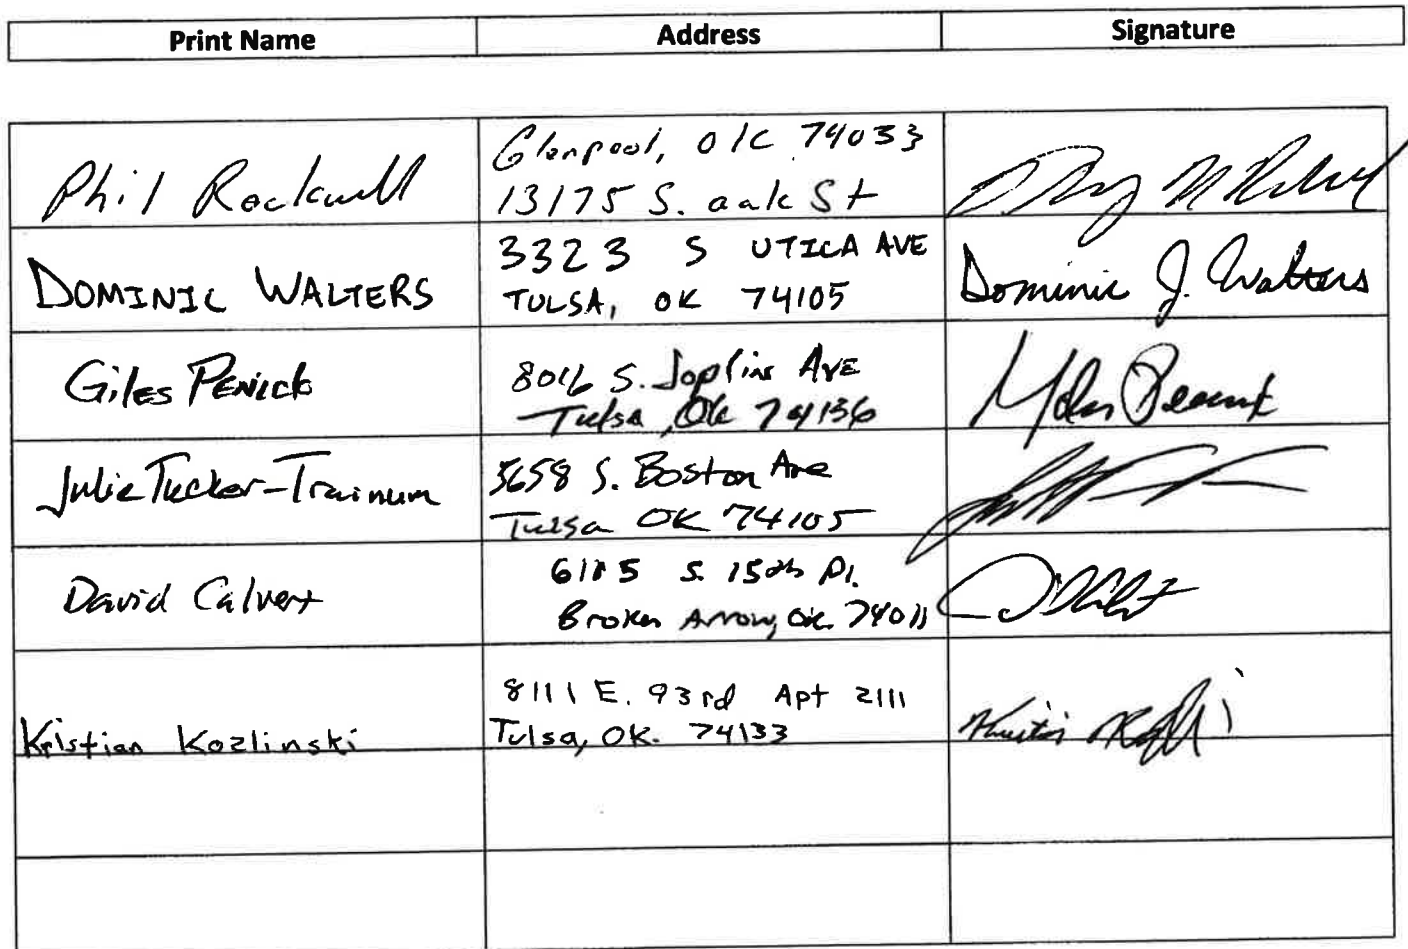 Print Name Address Signature
Phil Rockwell
Glenpool, OK 74033
13175 S. oak St
DOMINIC WALTERS
3323 S UTICA AVE
TULSA, OK 74105
Dominic J. Walters
Giles Penick
8016 S. Joplin Ave
Tulsa, Ok 74136
Julie Tucker-Trainum
5658 S. Boston Ave
Tulsa OK 74105
David Calvert
S. Pl.
Broken Arrow, OK. 74011
Kristian Kozlinski
8111 E. 93rd Apt 2111
Tulsa, OK. 74133